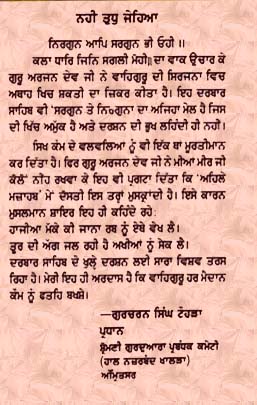 ਨਹੀ ਤੁਧੁ ਜੇਹਿਆ
ਨਿਰਗੁਨ ਆਪਿ ਸਰਗੁਨ ਭੀ ਓਹੀ ॥
ਕਲਾ ਧਾਰਿ ਜਿਨਿ ਸਗਲੀ ਮੋਹੀ॥ਦਾ ਵਾਕ ਉਚਾਰ ਕੇ
ਗੁਰੂ ਅਰਜਨ ਦੇਵ ਜੀ ਨੇ ਵਾਹਿਗੁਰੂ ਦੀ ਸਿਰਜਨਾ ਵਿਚ
ਅਥਾਹ ਖਿਚ ਸ਼ਕਤੀ ਦਾ ਜ਼ਿਕਰ ਕੀਤਾ ਹੈ। ਇਹ ਦਰਬਾਰ
ਸਾਹਿਬ ਵੀ 'ਸਰਗੁਨ ਤੇ ਨਿਰਗੁਨਾ ਦਾ ਅਜਿਹਾ ਮੇਲ ਹੈ ਜਿਸ
ਦੀ ਖਿੱਚ ਅਮੁੱਕ ਹੈ ਅਤੇ ਦਰਸ਼ਨ ਦੀ ਭੁਖ ਲਹਿੰਦੀ ਹੀ ਨਹੀਂ।
ਸਿਖ ਕੌਮ ਦੇ ਵਲਵਲਿਆਂ ਨੂੰ ਵੀ ਇੱਕ ਥਾਂ ਮੂਰਤੀਮਾਨ
ਕਰ ਦਿੰਤਾ ਹੈ। ਫਿਰ ਗੁਰੂ ਅਰਜਨ ਦੇਵ ਜੀ ਨੇ ਮੀਆਂ ਮੀਰ ਜੀ
ਕੋਲੋਂ ਨੀਂਹ ਰਖਵਾ ਕੇ ਇਹ ਵੀ ਪ੍ਰਗਟਾ ਦਿੱਤਾ ਕਿ 'ਅਹਿਲੇ
ਮਜ਼ਾਹਬ' ਮੇਂ ਦੋਸਤੀ ਇਸ ਤਰ੍ਹਾਂ ਮੁਸਕ੍ਰਾਂਦੀ ਹੈ। ਇਸੇ ਕਾਰਨ
ਮੁਸਲਮਾਨ ਸ਼ਾਇਰ ਇਹ ਹੀ ਕਹਿੰਦੇ ਰਹੇ:
ਹਾਜੀਆ ਮੱਕੇ ਕੀ ਜਾਨਾ ਰਬ ਨੂੰ ਏਥੇ ਵੇਖ ਲੈ।
ਤੂਰ ਦੀ ਅੱਗ ਜਲ ਰਹੀ ਹੈ ਅਖੀਆਂ ਨੂੰ ਸੇਕ ਲੈ।
ਦਰਬਾਰ ਸਾਹਿਬ ਦੇ ਖੁਲ੍ਹੇ ਦਰਸ਼ਨ ਲਈ ਸਾਰਾ ਵਿਸ਼ਵ ਤਰਸ
ਰਿਹਾ ਹੈ। ਮੇਰੀ ਇਹ ਹੀ ਅਰਦਾਸ ਹੈ ਕਿ ਵਾਹਿਗੁਰੂ ਹਰ ਮੈਦਾਨ
ਕੌਮ ਨੂੰ ਫਤਹਿ ਬਖਸ਼ੇ।
—ਗੁਰਚਰਨ ਸਿੰਘ ਟੌਹੜਾ
ਪ੍ਰਧਾਨ
ਸ਼੍ਰੋਮਣੀ ਗੁਰਦੁਆਰਾ ਪ੍ਰਬੰਧਕ ਕਮੇਟੀ
(ਹਾਲ ਨਜ਼ਰਬੰਦ ਖਾਲੜਾ)
ਅੰਮ੍ਰਿਤਸਰ